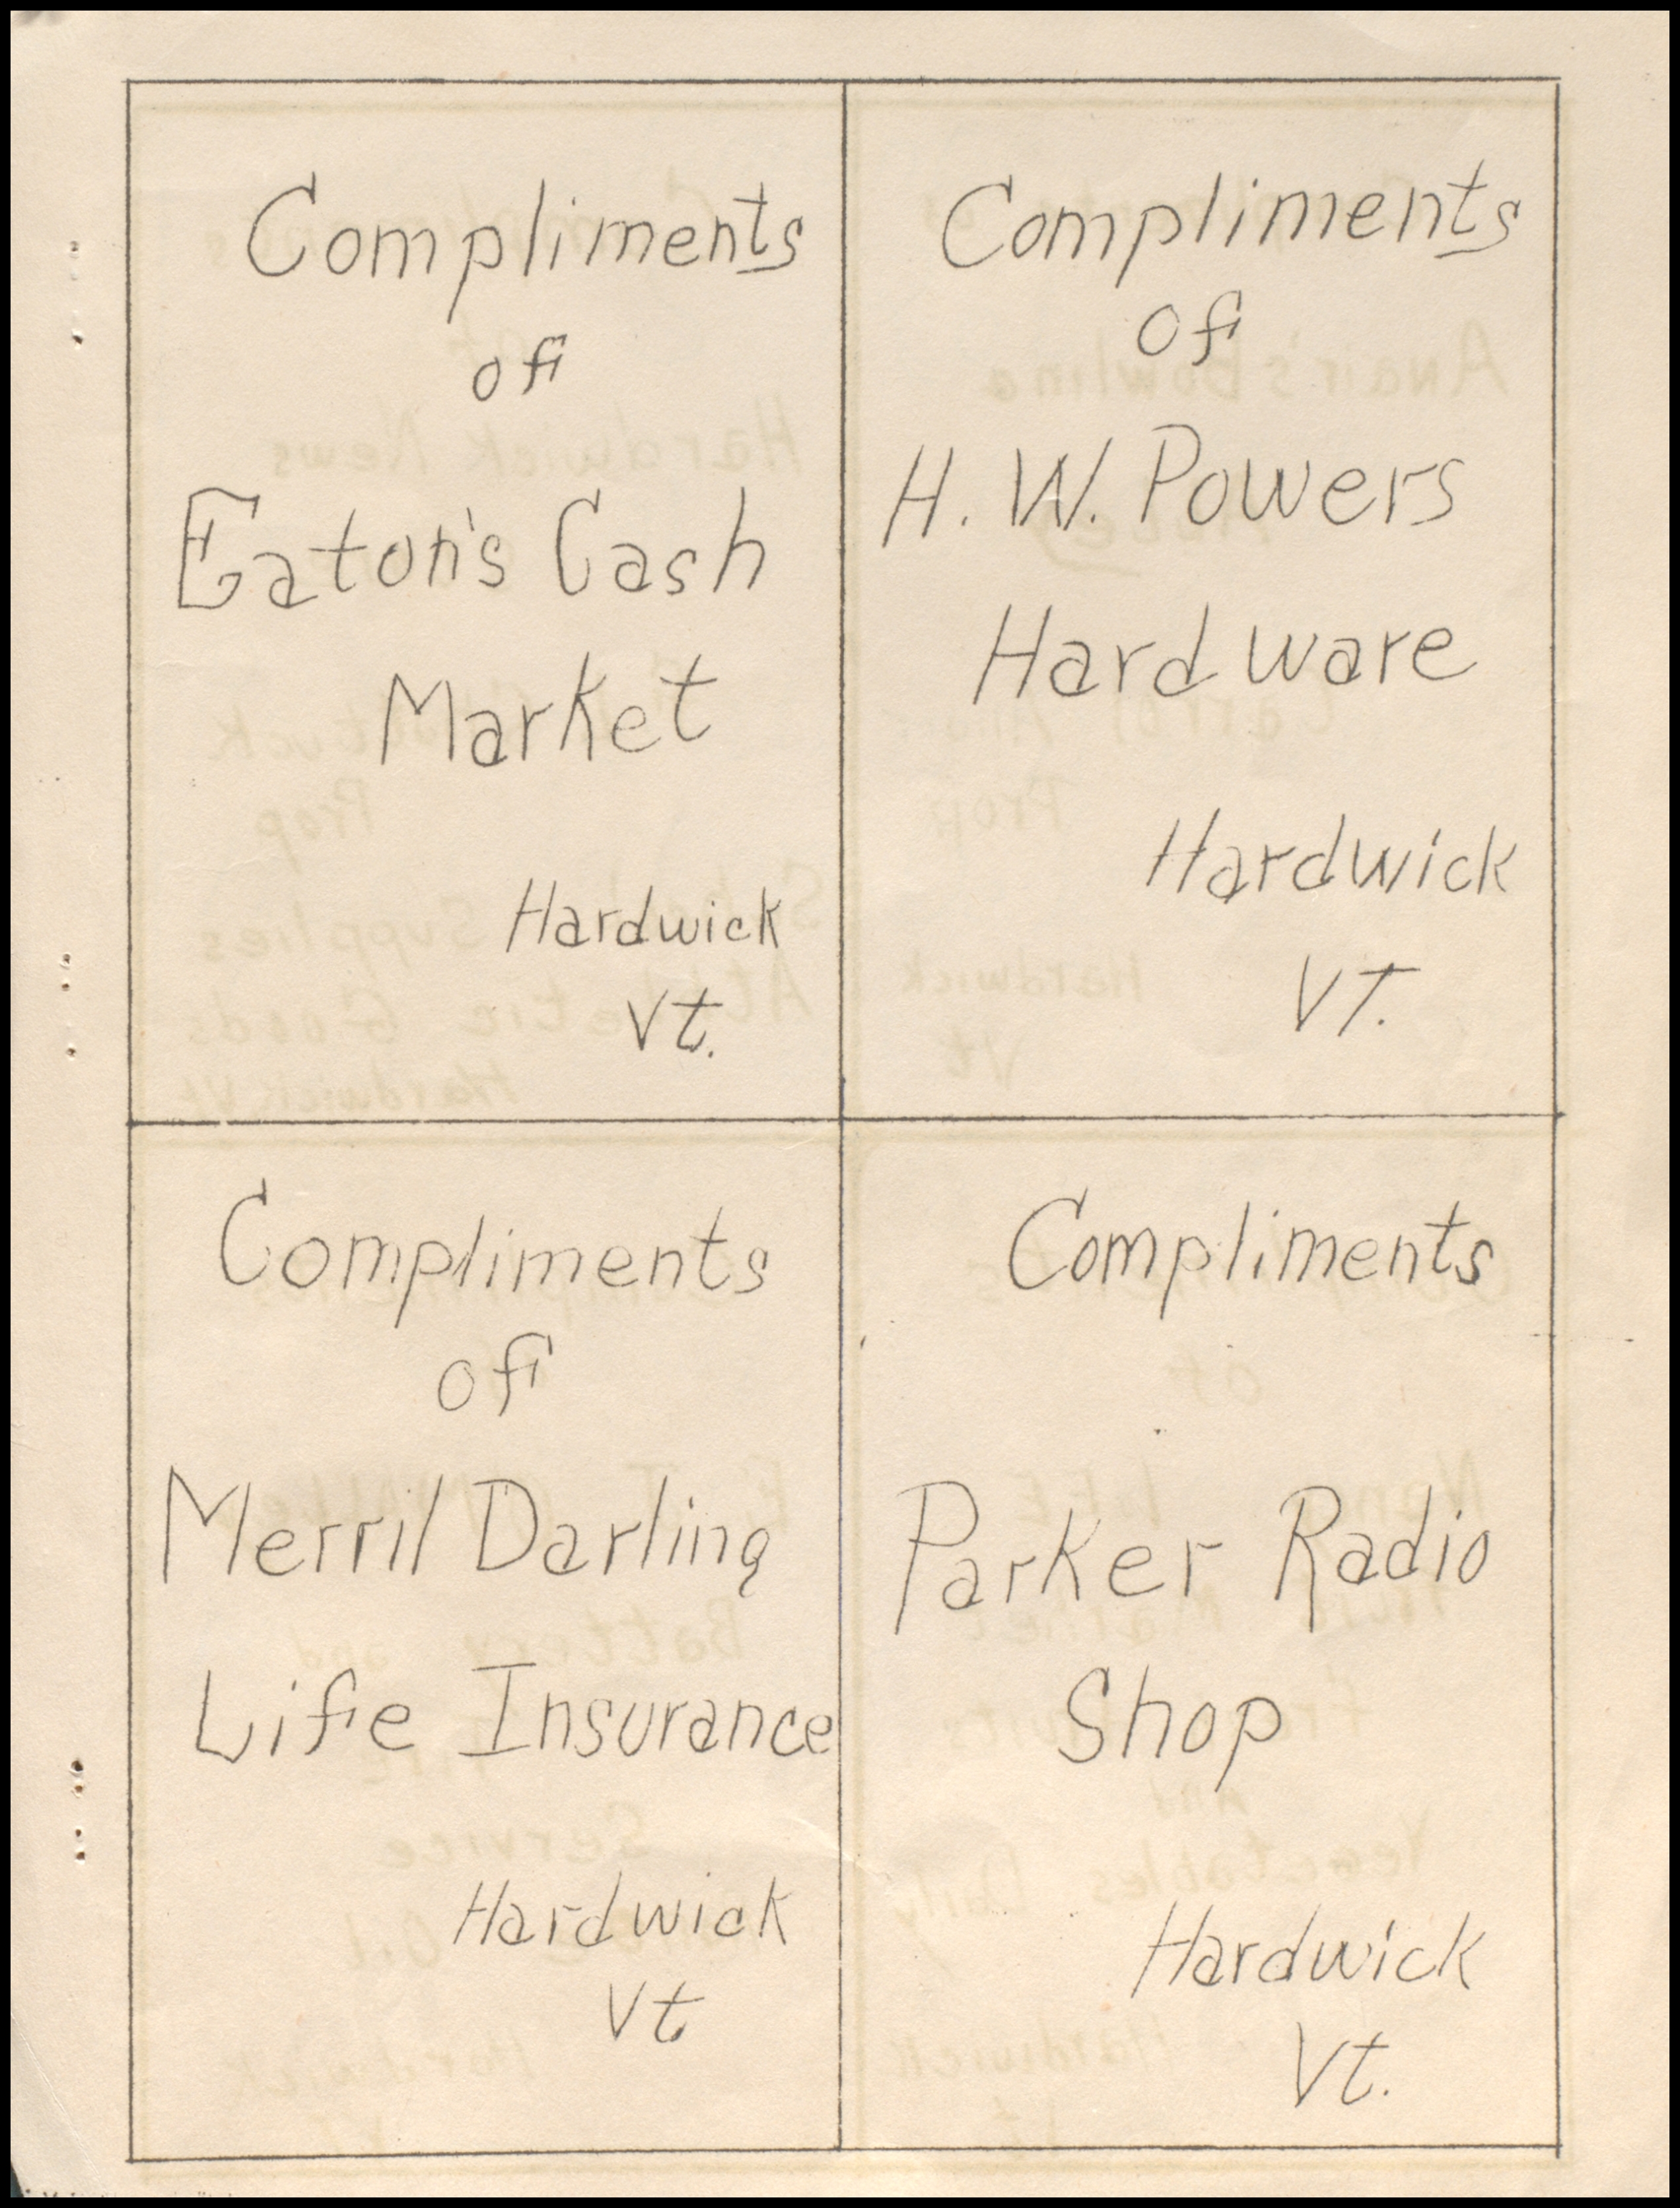 Compliments
of
Eaton's Cash
Market
Hardwick
Vt.
Compliments
of
H. W. Powers
Hardware
Hardwick
VT.
Compliments
of
Merril Darling
Life Insurance
Hardwick
Vt
Compliments
Parker Radio
Shop
Hardwick
Vt.